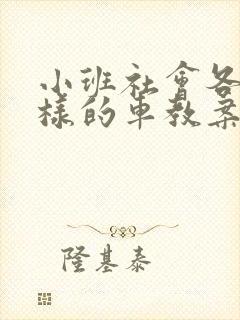 小班社會各
樣的車教案
隆基泰